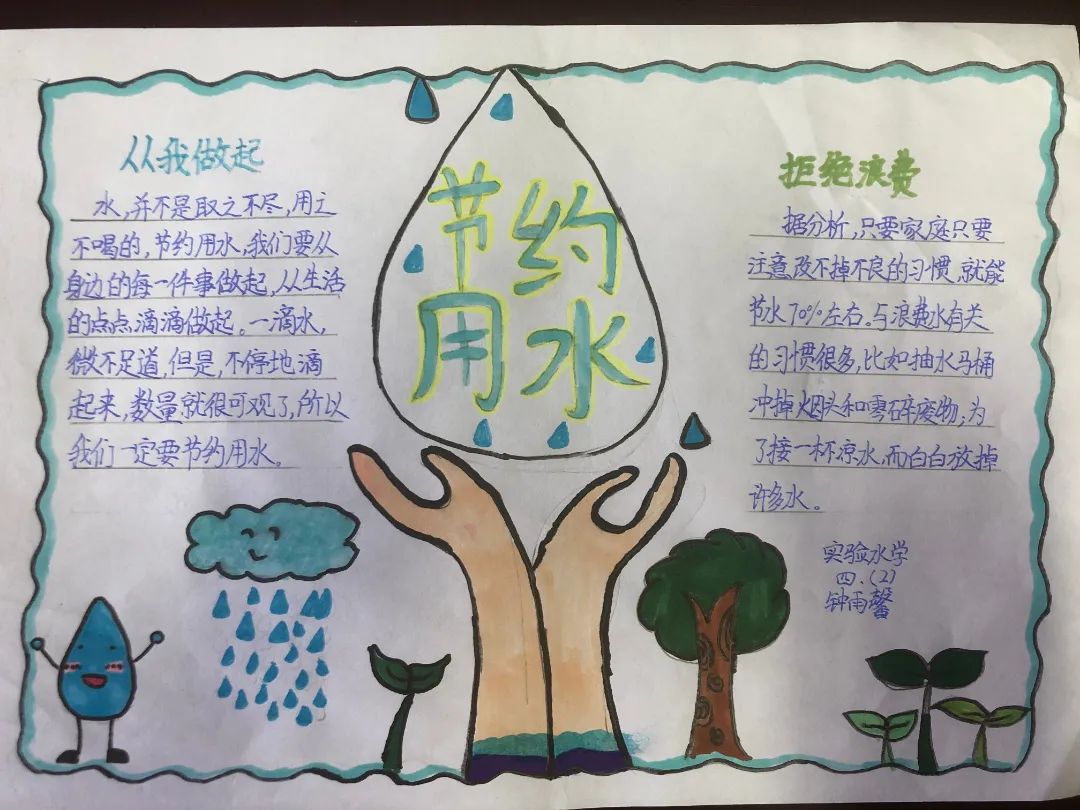 节约
用水
从我做起
水,并不是取之不尽,用之
不喝的,节约用水,我们要从
身边的每一件事做起,从生活
的点点滴滴做起。一滴水,
微不足道,但是,不停地滴
起来,数量就很可观了,所以
我们一定要节约用水。
拒绝浪费
据分析,只要家庭只要
注意改不掉不良的习惯,就能
节水70%左右。与浪费水有关
的习惯很多,比如抽水马桶
冲掉烟头和零碎废物,为
了接一杯凉水,而白白放掉
许多水。
实验水学
四.(2)
钟雨馨